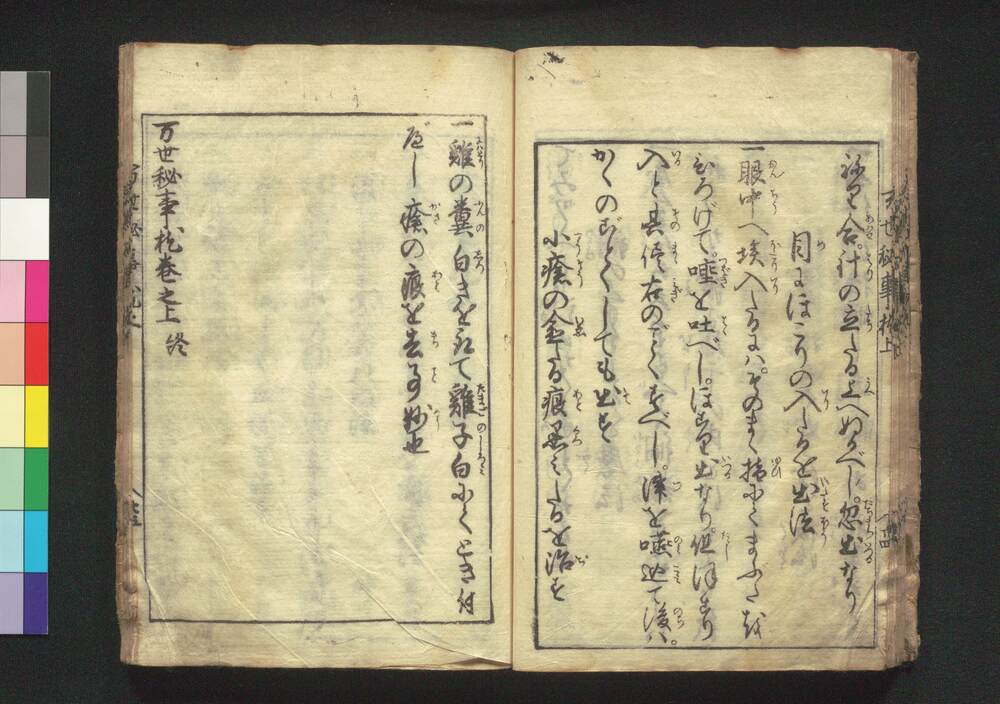 ねり合。針の立たる上へぬるべし。忽出なり
目にほこりの入たるを出法
一眼中へ埃入たるには。そのまゝ指にてまぶたを
ひろげて。唾を吐べし。ほこり出なり。但ほこり
入と其侭右のごとくすべし。涕を嚥込て後は。
かくのごとくしても出ず
小瘡の愈たる痕黒みたるを治す
一雞の糞白きを取て雞子白にてとき付
べし瘡の痕を去事妙也
万世秘事枕巻之上終
万世秘事枕上